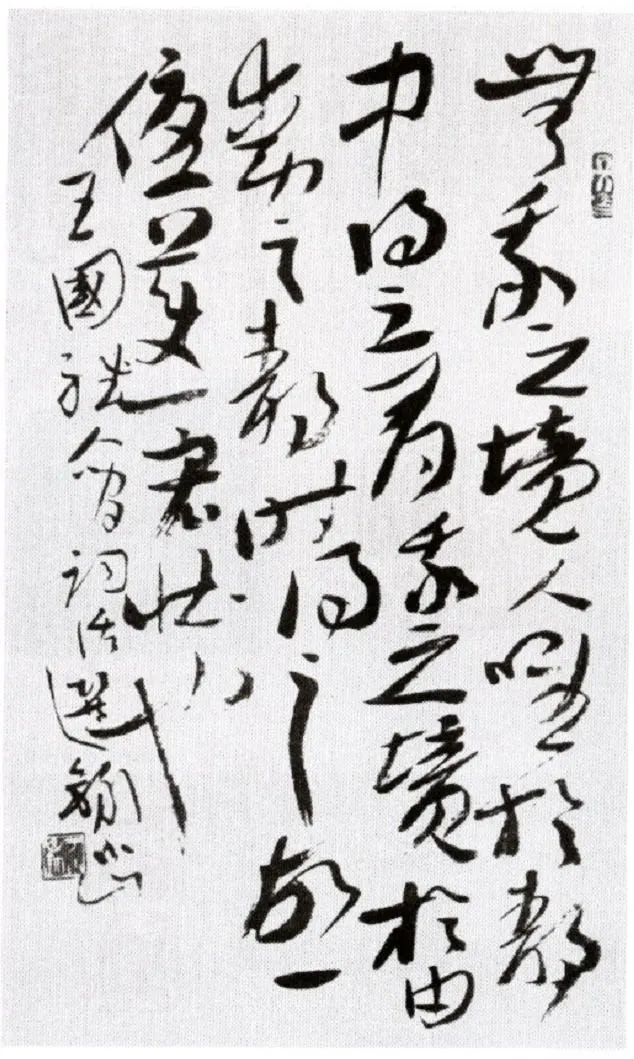 無我之境人唯於靜
中得之有我之境於由
動之靜時得之故一
優美一宏壯也
王國維人間詞話選 錦山